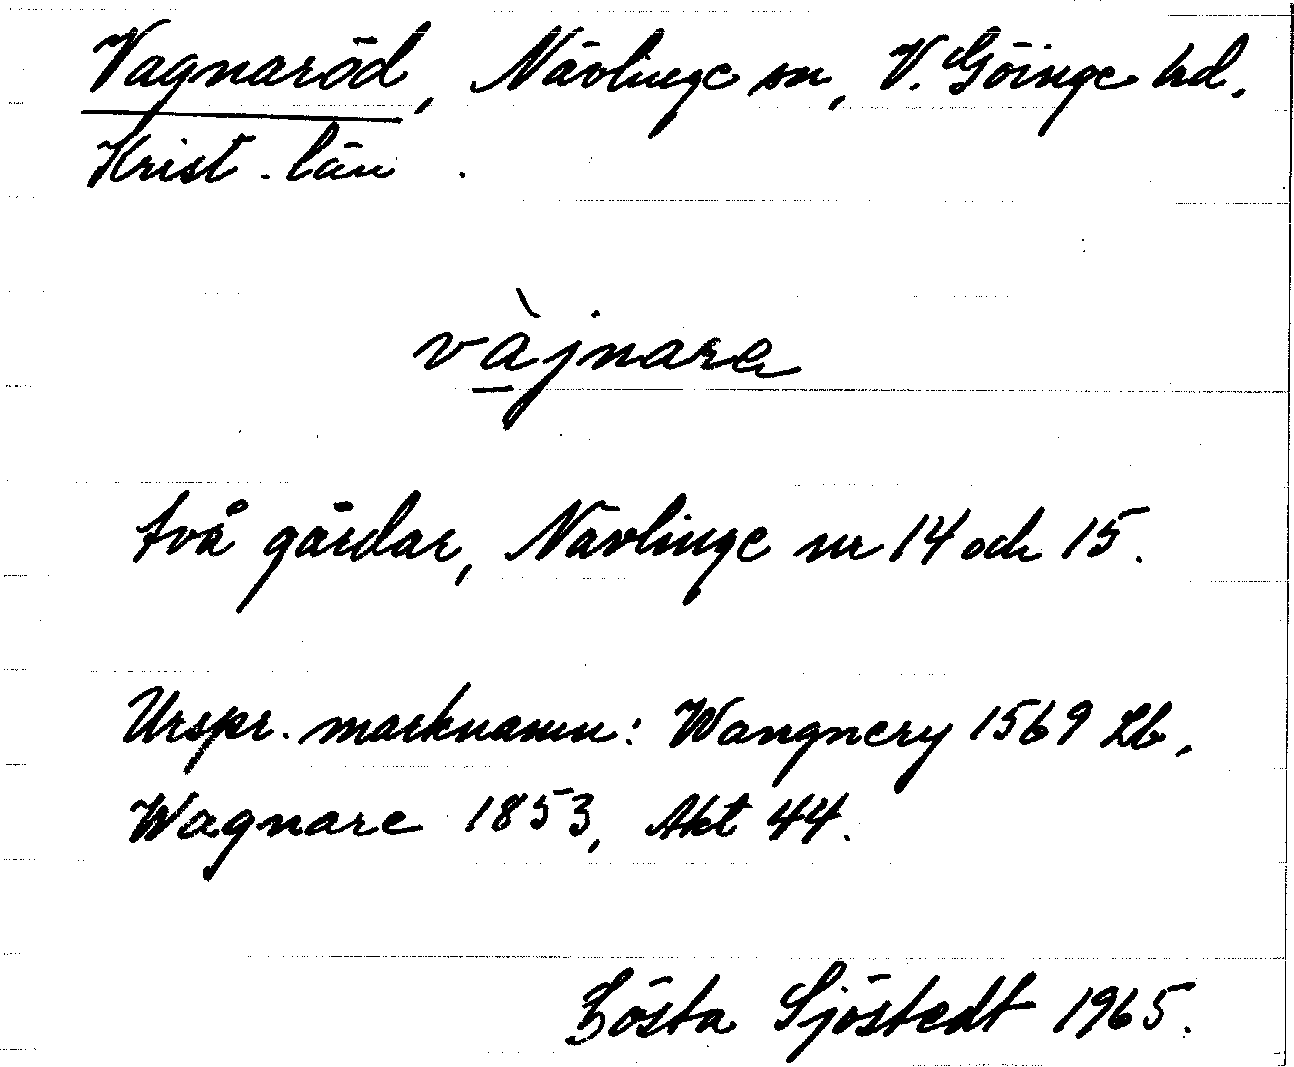 Vagnaröd, Nävlinge sn, V. Göinge hd.
Krist. län.
và̱jnara
två gårdar, Nävlinge nr 14 och 15.
Urspr. marknamn: Wangnery 1569 Lb,
Wagnare 1853, Akt 44.
Gösta Sjöstedt 1965.